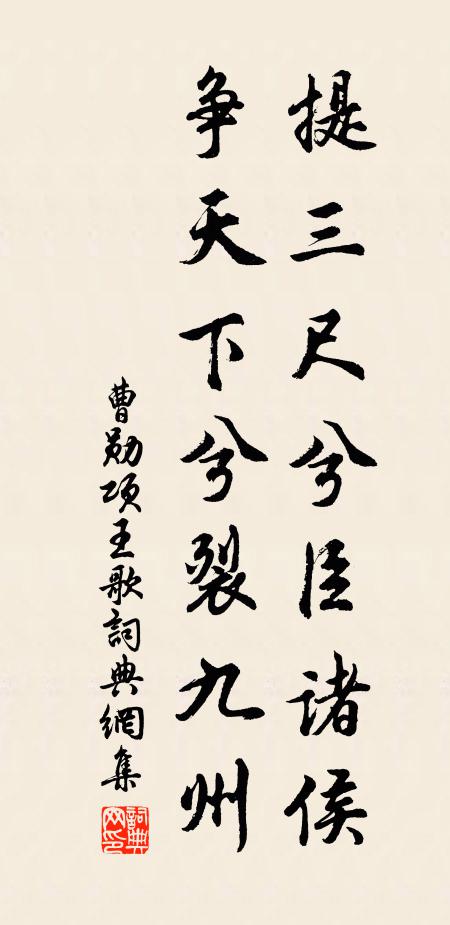 提三尺兮臣诸侯
争天下兮裂九州
曹勋项王歌詞典網集
詞典網印